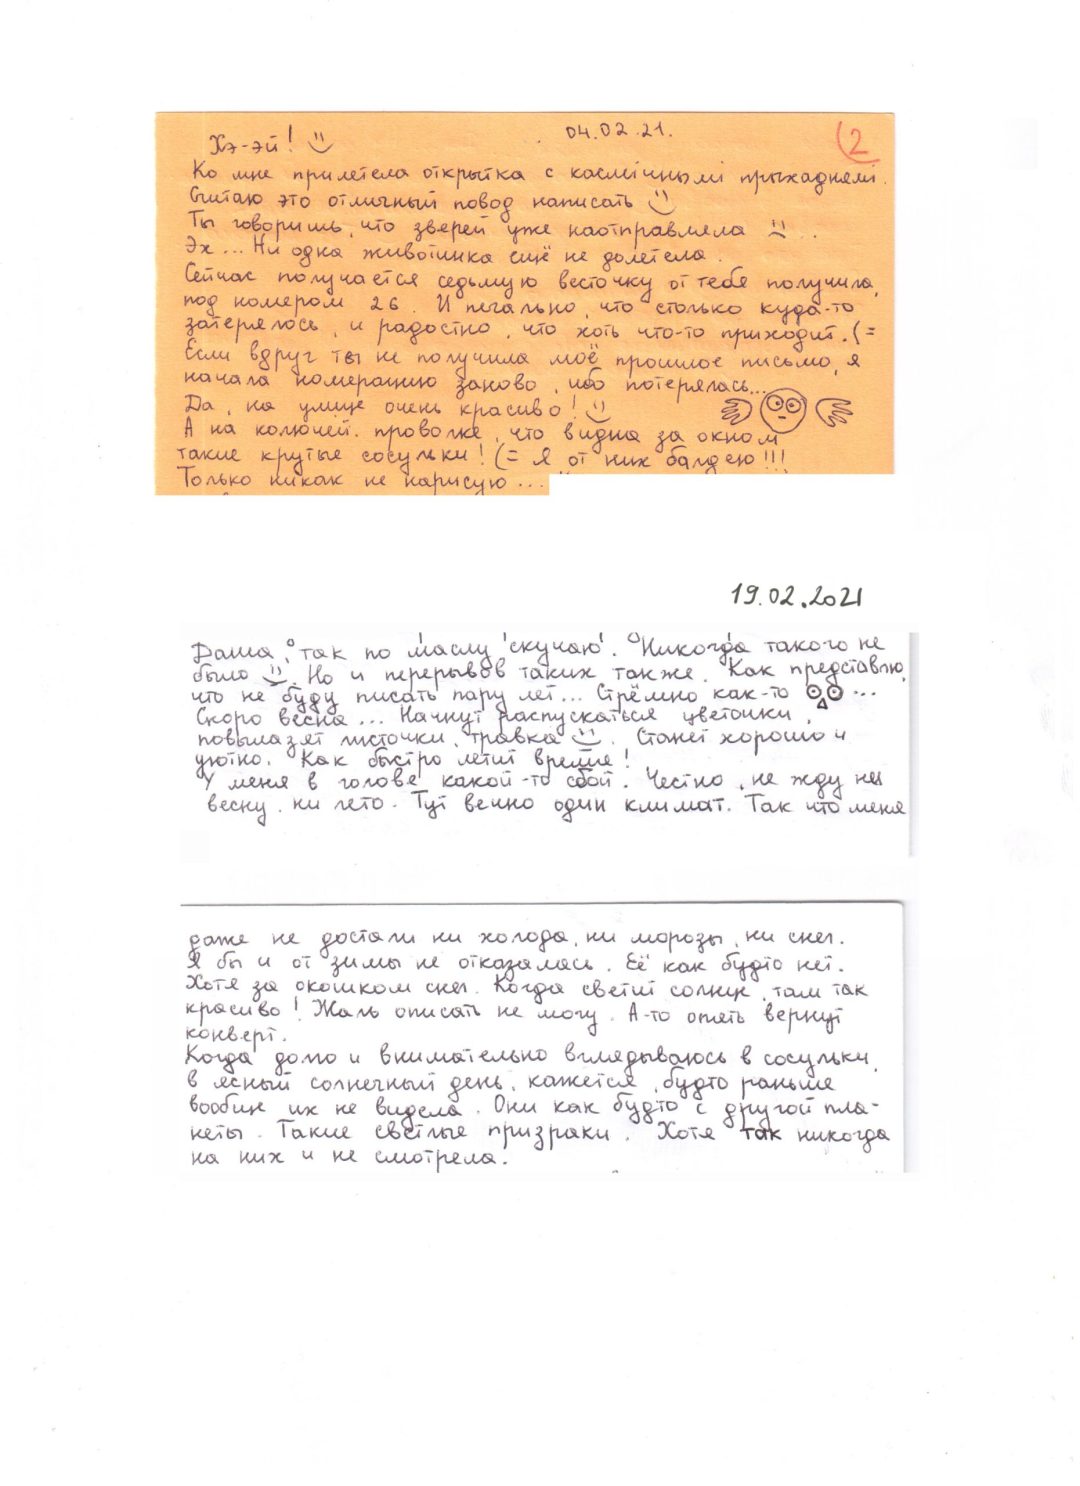 Хэ-эй!
04.02.21.
2
Ко мне прилетела открытка с касмічнымі прыхаднямі.
Считаю это отличный повод написать
Ты говоришь, что зверей уже наотправляла ...
Эх... Ни одна животинка ещё не долетела.
Сейчас получается седьмую весточку от тебя получила,
под номером 26. И печально, что столько куда-то
затерялось, и радостно, что хоть что-то приходит. (=
Если вдруг ты не получила моё прошлое письмо, я
начала нумерацию заново, ибо потерялась...
Да, на улице очень красиво!
А на колючей проволке, что видна за окном
такие крутые сосульки! (= Я от них балдею!!!
Только никак не нарисую...
19.02.2021
Даша, так по маслу 'скучаю'. Никогда такого не
было . Но и перерывов таких также. Как представлю,
что не буду писать пару лет... Стрёмно как-то ...
Скоро весна... Начнут распускаться цветочки,
повылазят листочки, травка . Станет хорошо и
уютно. Как быстро летит время!
У меня в голове какой-то сбой. Честно, не жду ни
весну, ни лето. Тут вечно один климат. Так что меня
даже не достали ни холода, ни морозы, ни снег.
Я бы и от зимы не отказалась. Её как будто нет.
Хотя за окошком снег. Когда светит солнце, там так
красиво! Жаль описать не могу. А-то опять вернут
конверт.
Когда долго и внимательно вглядываюсь в сосульки,
в ясный солнечный день, кажется, будто раньше
вообще их не видела. Они как будто с другой пла-
неты. Такие светлые призраки. Хотя так никогда
на них и не смотрела.